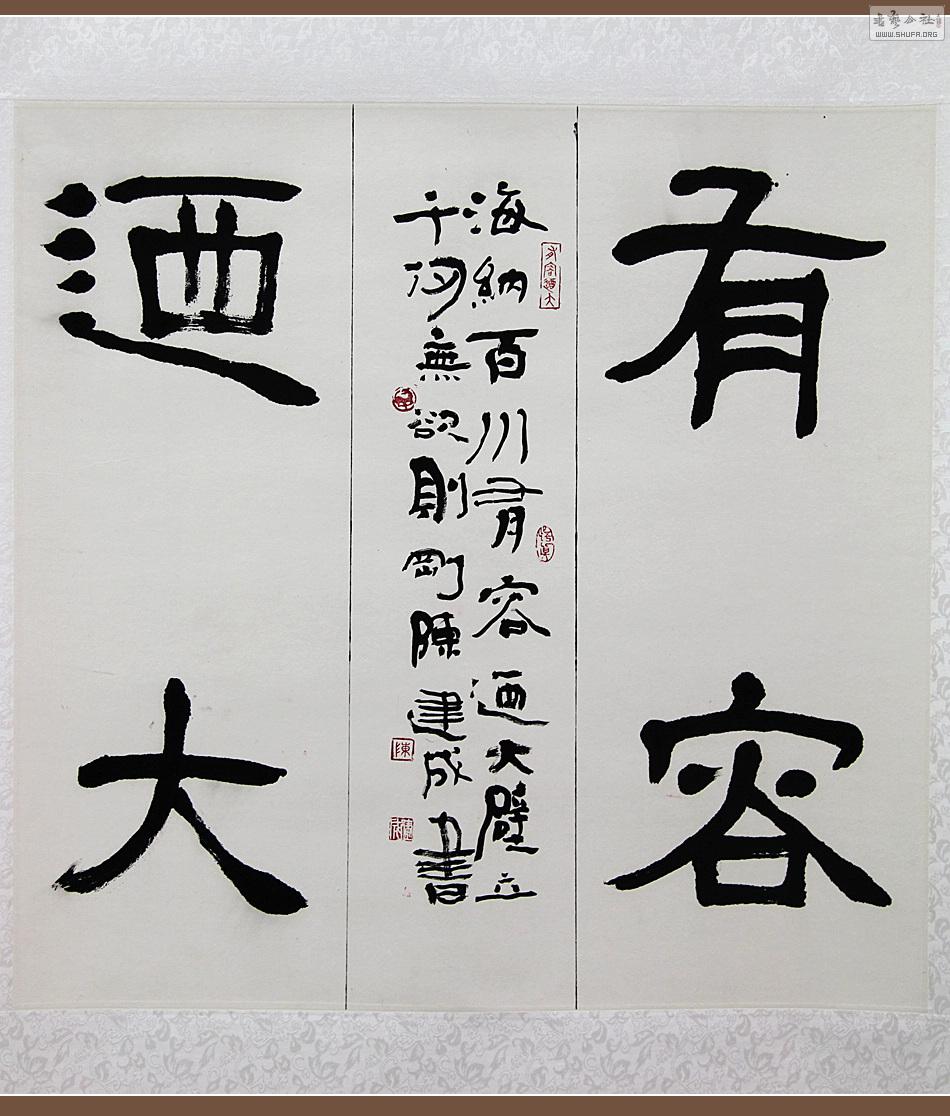 有容
海納百川有容迺大壁立
千仞無欲則剛陳建成書
迺大
有容迺大
陳
WWW.SHUFA.ORG